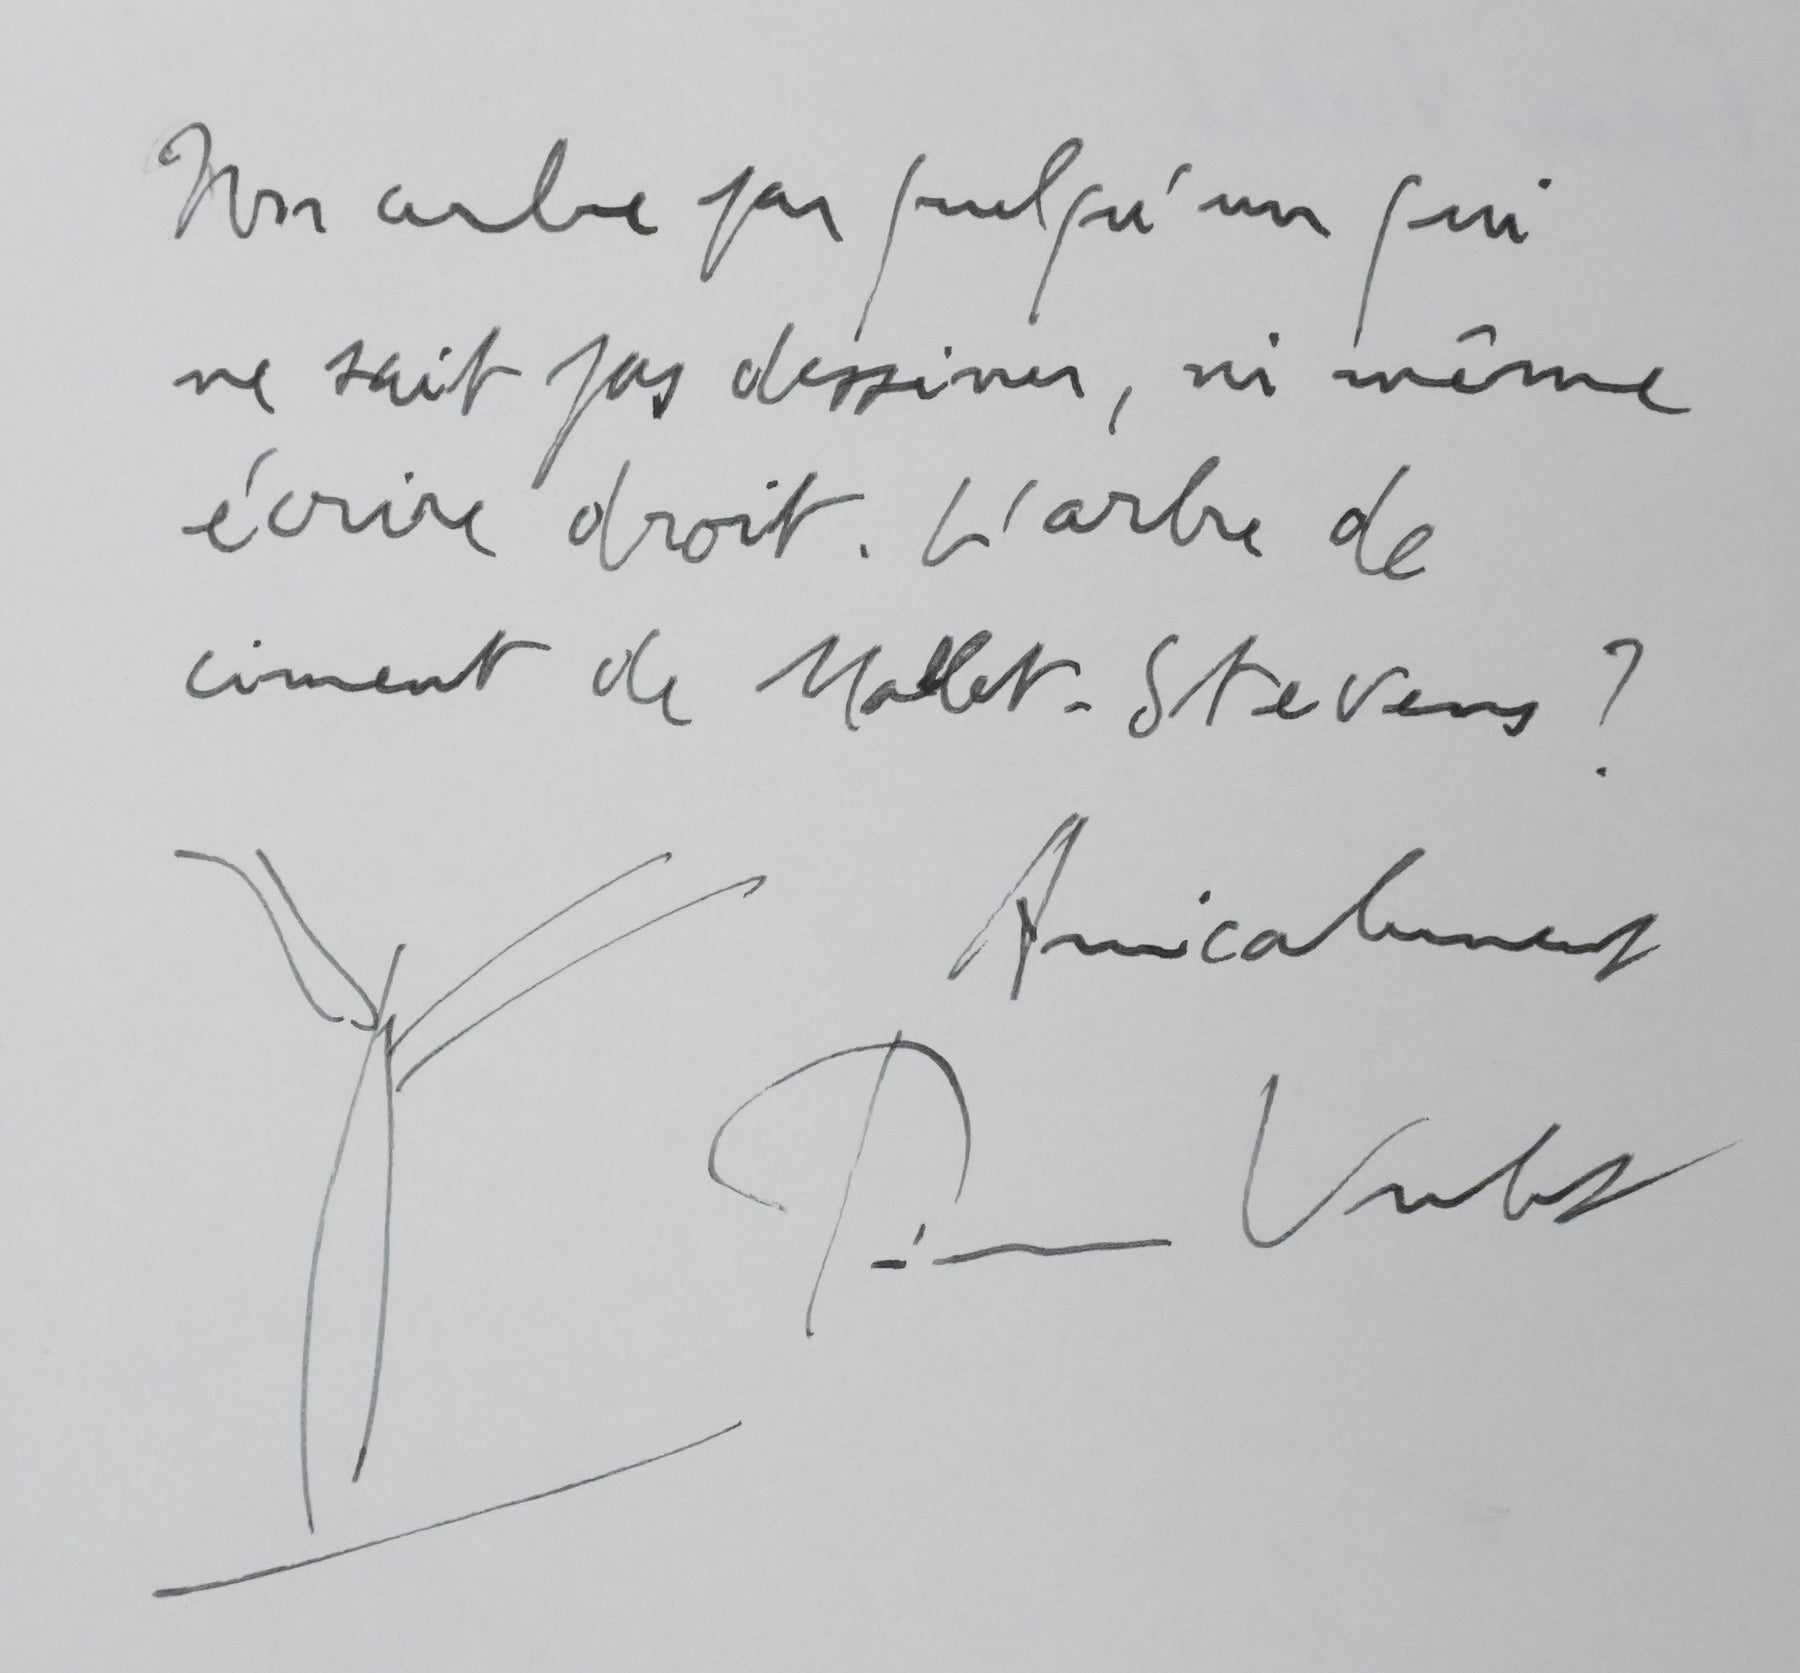 Mon arbre par quelqu'un qui
ne sait pas dessiner, ni même
écrire droit. L'arbre de
ciment de Mallet-Stevens ?
Amicalement